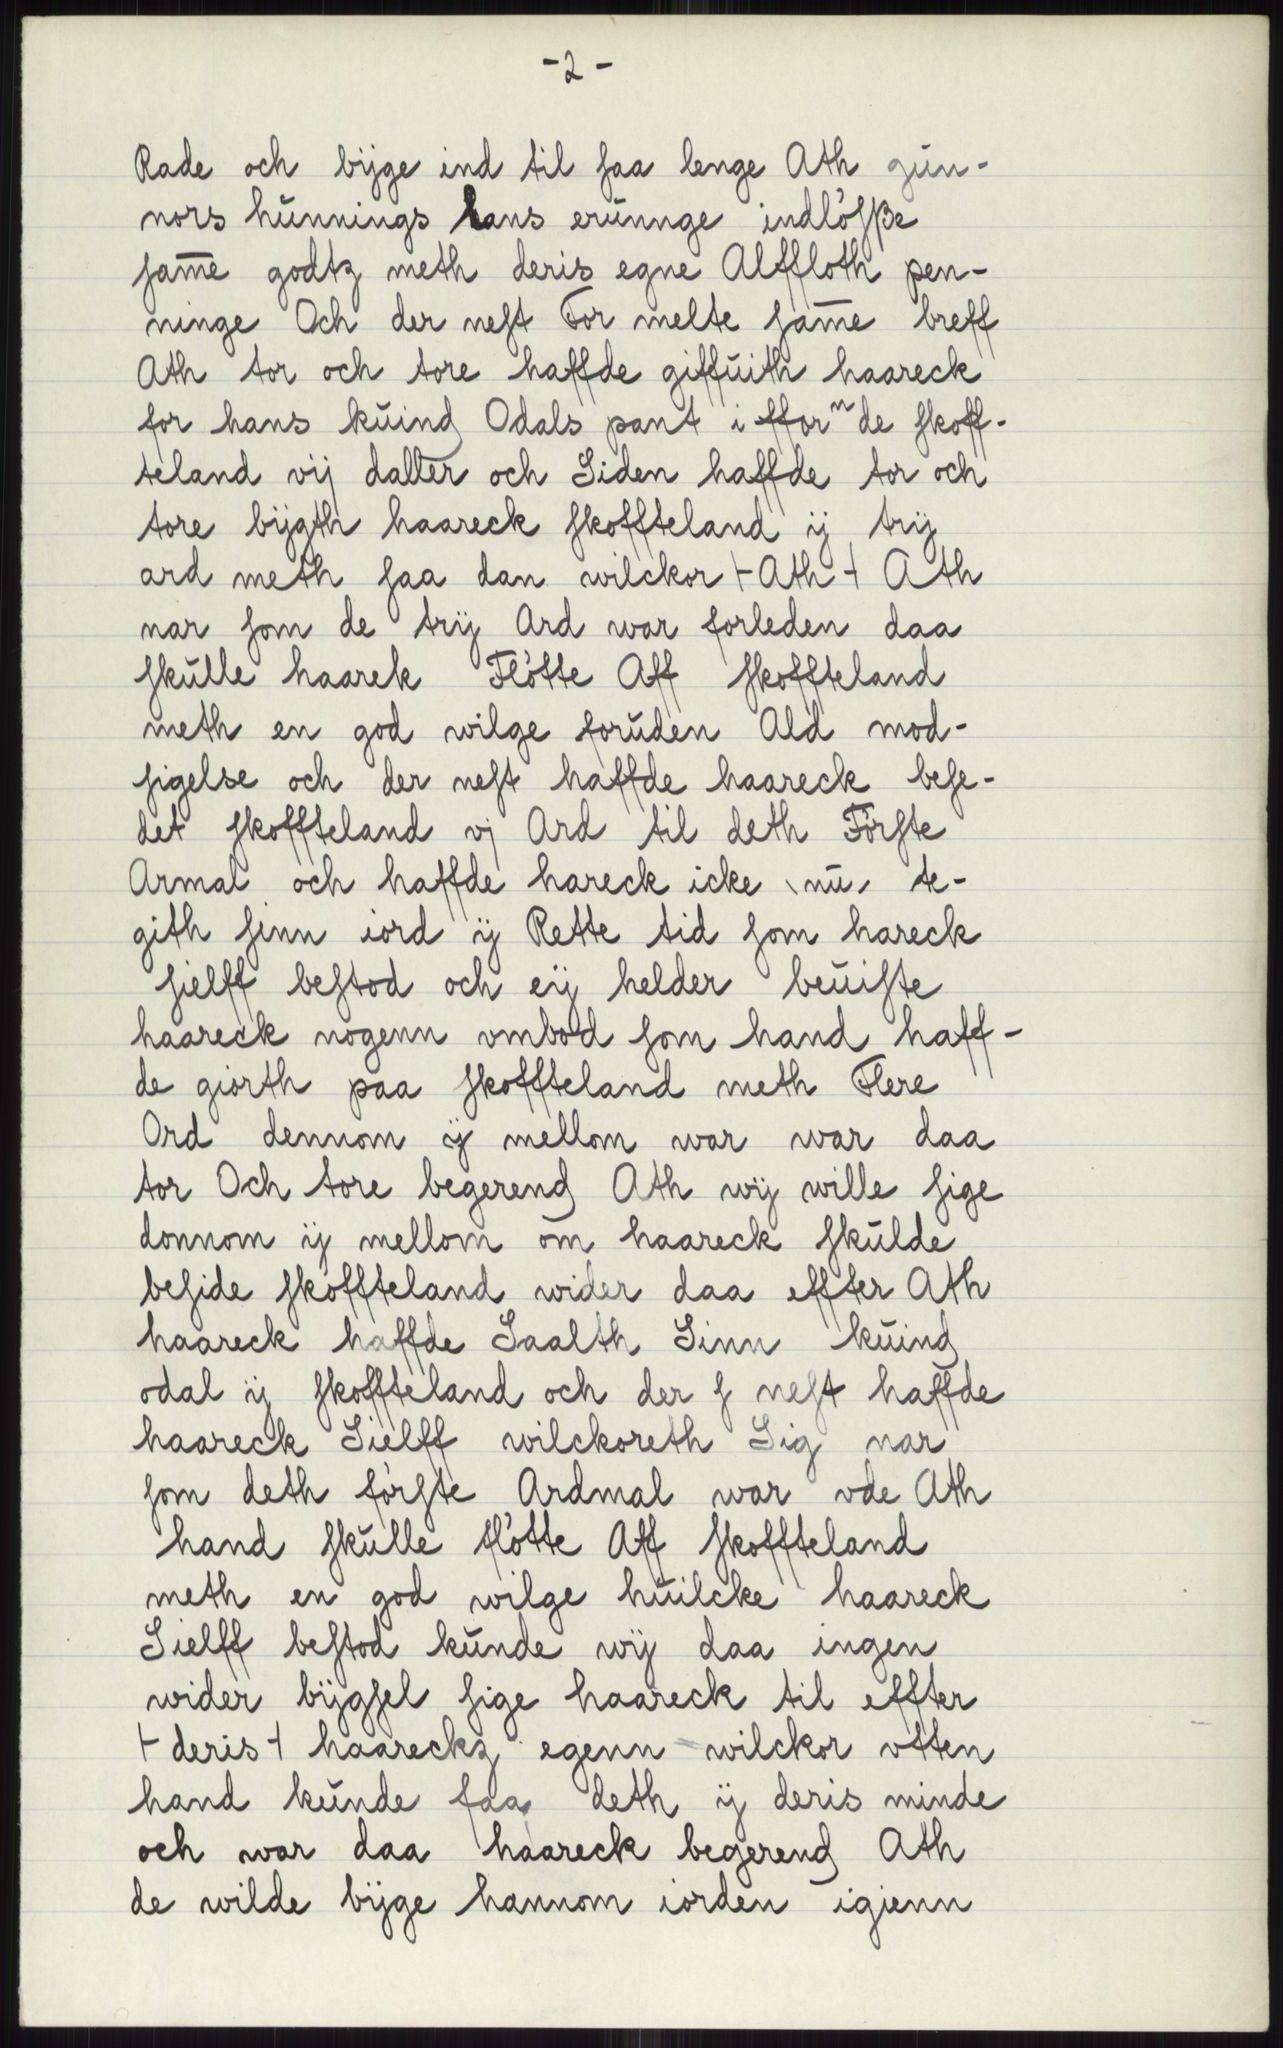 -2-
Rade och bijge ind til saa lenge Ath gún-
nors húnnings hans erúnnge indlösße
sam̄e godtz meth deris egne Alffloth pen-
ninge Och der nest For melte sam̄e breff
Ath tor och tore haffde giffúith haareck
for hans kúind Odals pant i fforⁿde skoff-
teland vij daller och Siden haffde tor och
tore bijgth haareck skoffteland ij trij
ard meth saa dan wilckor ⊢Ath⊣ Ath
nar som de trij Ard war forleden daa
skúlle haarek Flötte Aff skoffteland
meth en god wilge forúden Ald mod-
sigelse och der nest haffde haareck bese-
det skoffteland vj Ard til deth Förste
Armal och haffde hareck icke \nú/ te-
gith sinn iord ij Rette tid som hareck
sielff bestod och eij helder beúiste
haareck nogenn ombod som hand haff-
de giorth paa skoffteland meth Flere
Ord dennom ij mellom war war daa
tor Och tore begerend Ath wij wille sige
donnom ij mellom om haareck skúlde
beside skoffteland wider daa effter Ath
haareck haffde Saalth Sinn kúind
odal ij skoffteland och der s nest haffde
haareck Sielff wilckoreth Sig nar
som deth förste Ardmal war vde Ath
hand skúlle flötte Aff skoffteland
meth en god wilge húilcke haareck
Sielff bestod kúnde wij daa ingen
wider bijgsel sige haareck til effter
⊢deris⊣ haareckz egenn wilckor vtten
hand kúnde faa deth ij deris minde
och war daa haareck begerend Ath
de wilde bijge hannom iorden igienn